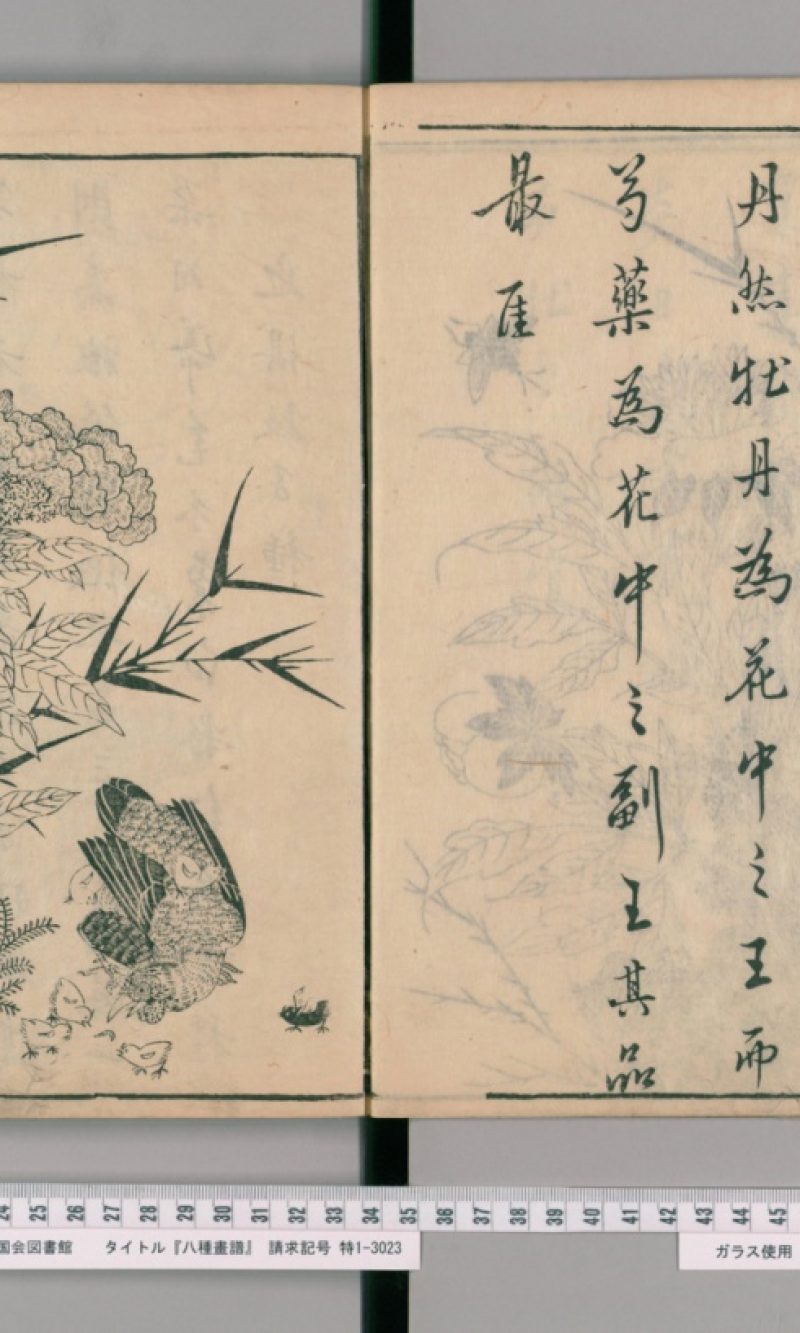 丹然牡丹為花中之王而
芍藥為花中之副王其品
最
24 25 26 27 28 29 30 31 32 33 34 35 36 37 38 39 40 41 42 43 44 45
国会図書館 タイトル『八種畫譜』 請求記号 特1-3023
ガラス使用